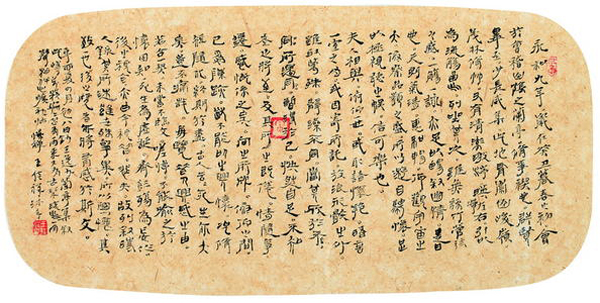 永和九年歲在癸丑暮春之初會
於會稽山陰之蘭亭脩禊事也群賢
畢至少長咸集此地有崇山峻嶺
茂林修竹又有清流激湍映帶左右引以
為流觴曲水列坐其次雖無絲竹管弦
之盛一觴一詠亦足以暢敘幽情是日
也天朗氣清惠風和暢仰觀宇宙之
大俯察品類之盛所以遊目騁懷足
以極視聽之娛信可樂也
夫人之相與俯仰一世或取諸懷抱晤言
一室之內或因寄所託放浪形骸之外
雖取舍萬殊靜躁不同當其欣於所
遇暫得於己快然自足不知
老之將至及其所之既倦情隨事
遷感慨係之矣向之所欣俯仰之間
已為陳跡猶不能不以之興懷況修
短隨化終期於盡古人云死生亦大
矣豈不痛哉每覽昔人興感之由
若合一契未嘗不臨文嗟悼不能喻之於
懷固知死生為虛誕齊彭殤為妄作
後之視今亦猶今之視昔悲夫故列敘時
人錄其所述雖世殊事異所以興懷其
致一也後之覽者亦將有感於斯文